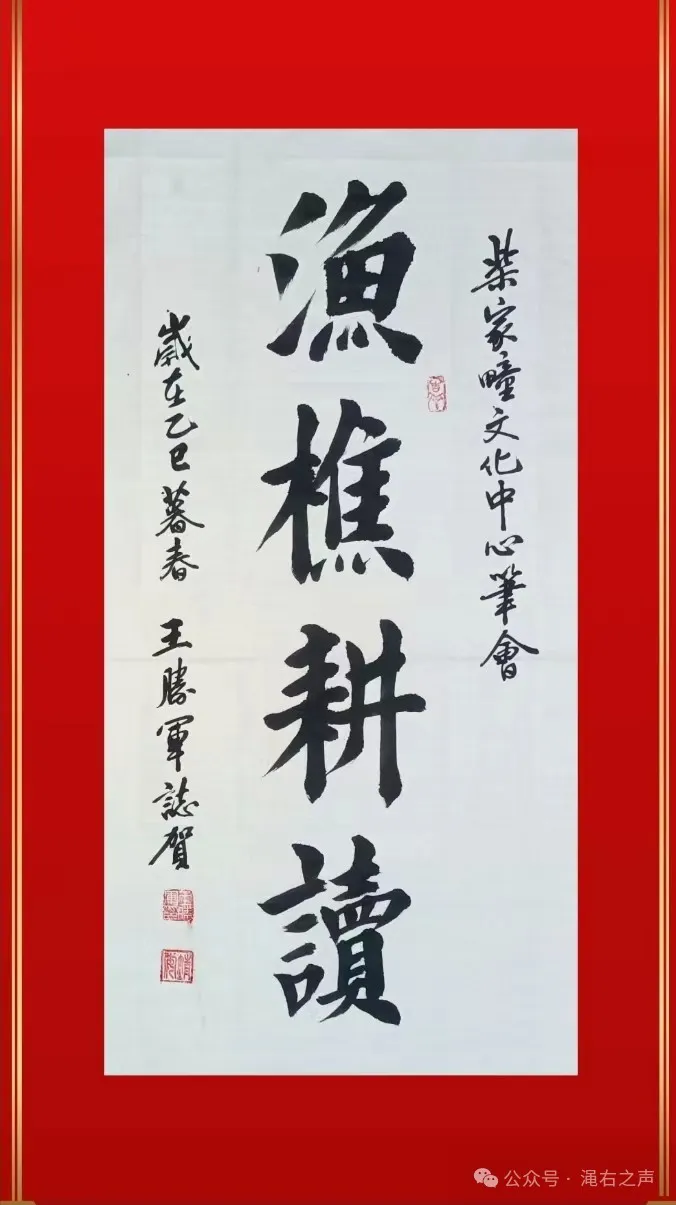 柴家疃文化中心筆會
漁樵耕讀
歲在乙巳暮春 王勝軍誌賀
公众号 · 渑右之声